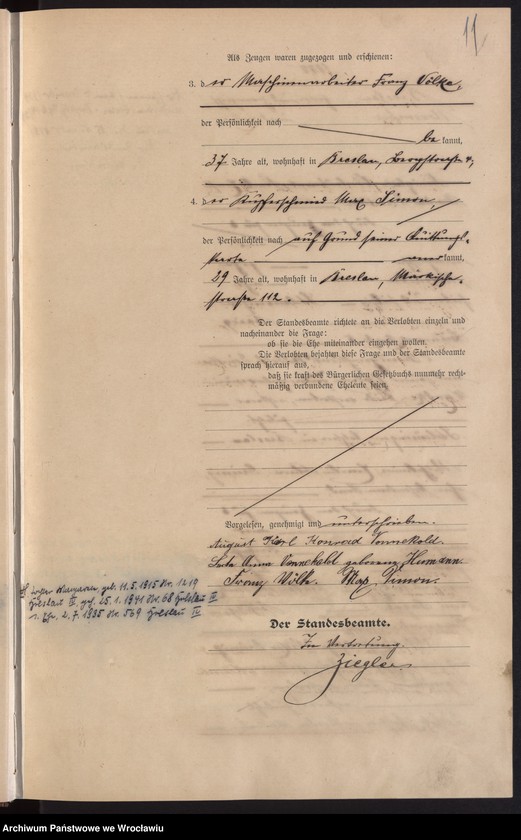 11
Als Zeugen waren zugezogen und erschienen:
3. der Maschinenarbeiter Franz Völke,
der Persönlichkeit nach
be kannt,
37 Jahre alt, wohnhaft in Breslau, Bergstraße 4,
4. der Kupferschmied Max Simon,
der Persönlichkeit nach auf Grund seiner Quittungs-
karte anerkannt,
29 Jahre alt, wohnhaft in Breslau, Märkische-
straße 112.
Der Standesbeamte richtete an die Verlobten einzeln und
nacheinander die Frage:
ob sie die Ehe miteinander eingehen wollen.
Die Verlobten bejahten diese Frage und der Standesbeamte
sprach hierauf aus,
daß sie kraft des Bürgerlichen Gesetzbuchs nunmehr recht-
mäßig verbundene Eheleute seien.
Vorgelesen, genehmigt und unterschrieben.
August Karl Konrad Vonnekold.
Anna Vonnekold geborene Hermann.
Franz Völke. Max Simon.
Der Standesbeamte.
In Vertretung.
Ziegler
Tochter Margarete geb. 11.5.1915 Nr. 1219
Breslau III gest. 25.1.1941 Nr. 68 Breslau II
1. Ehe. 2.7.1935 Nr. 569 Breslau IV
Archiwum Państwowe we Wrocławiu